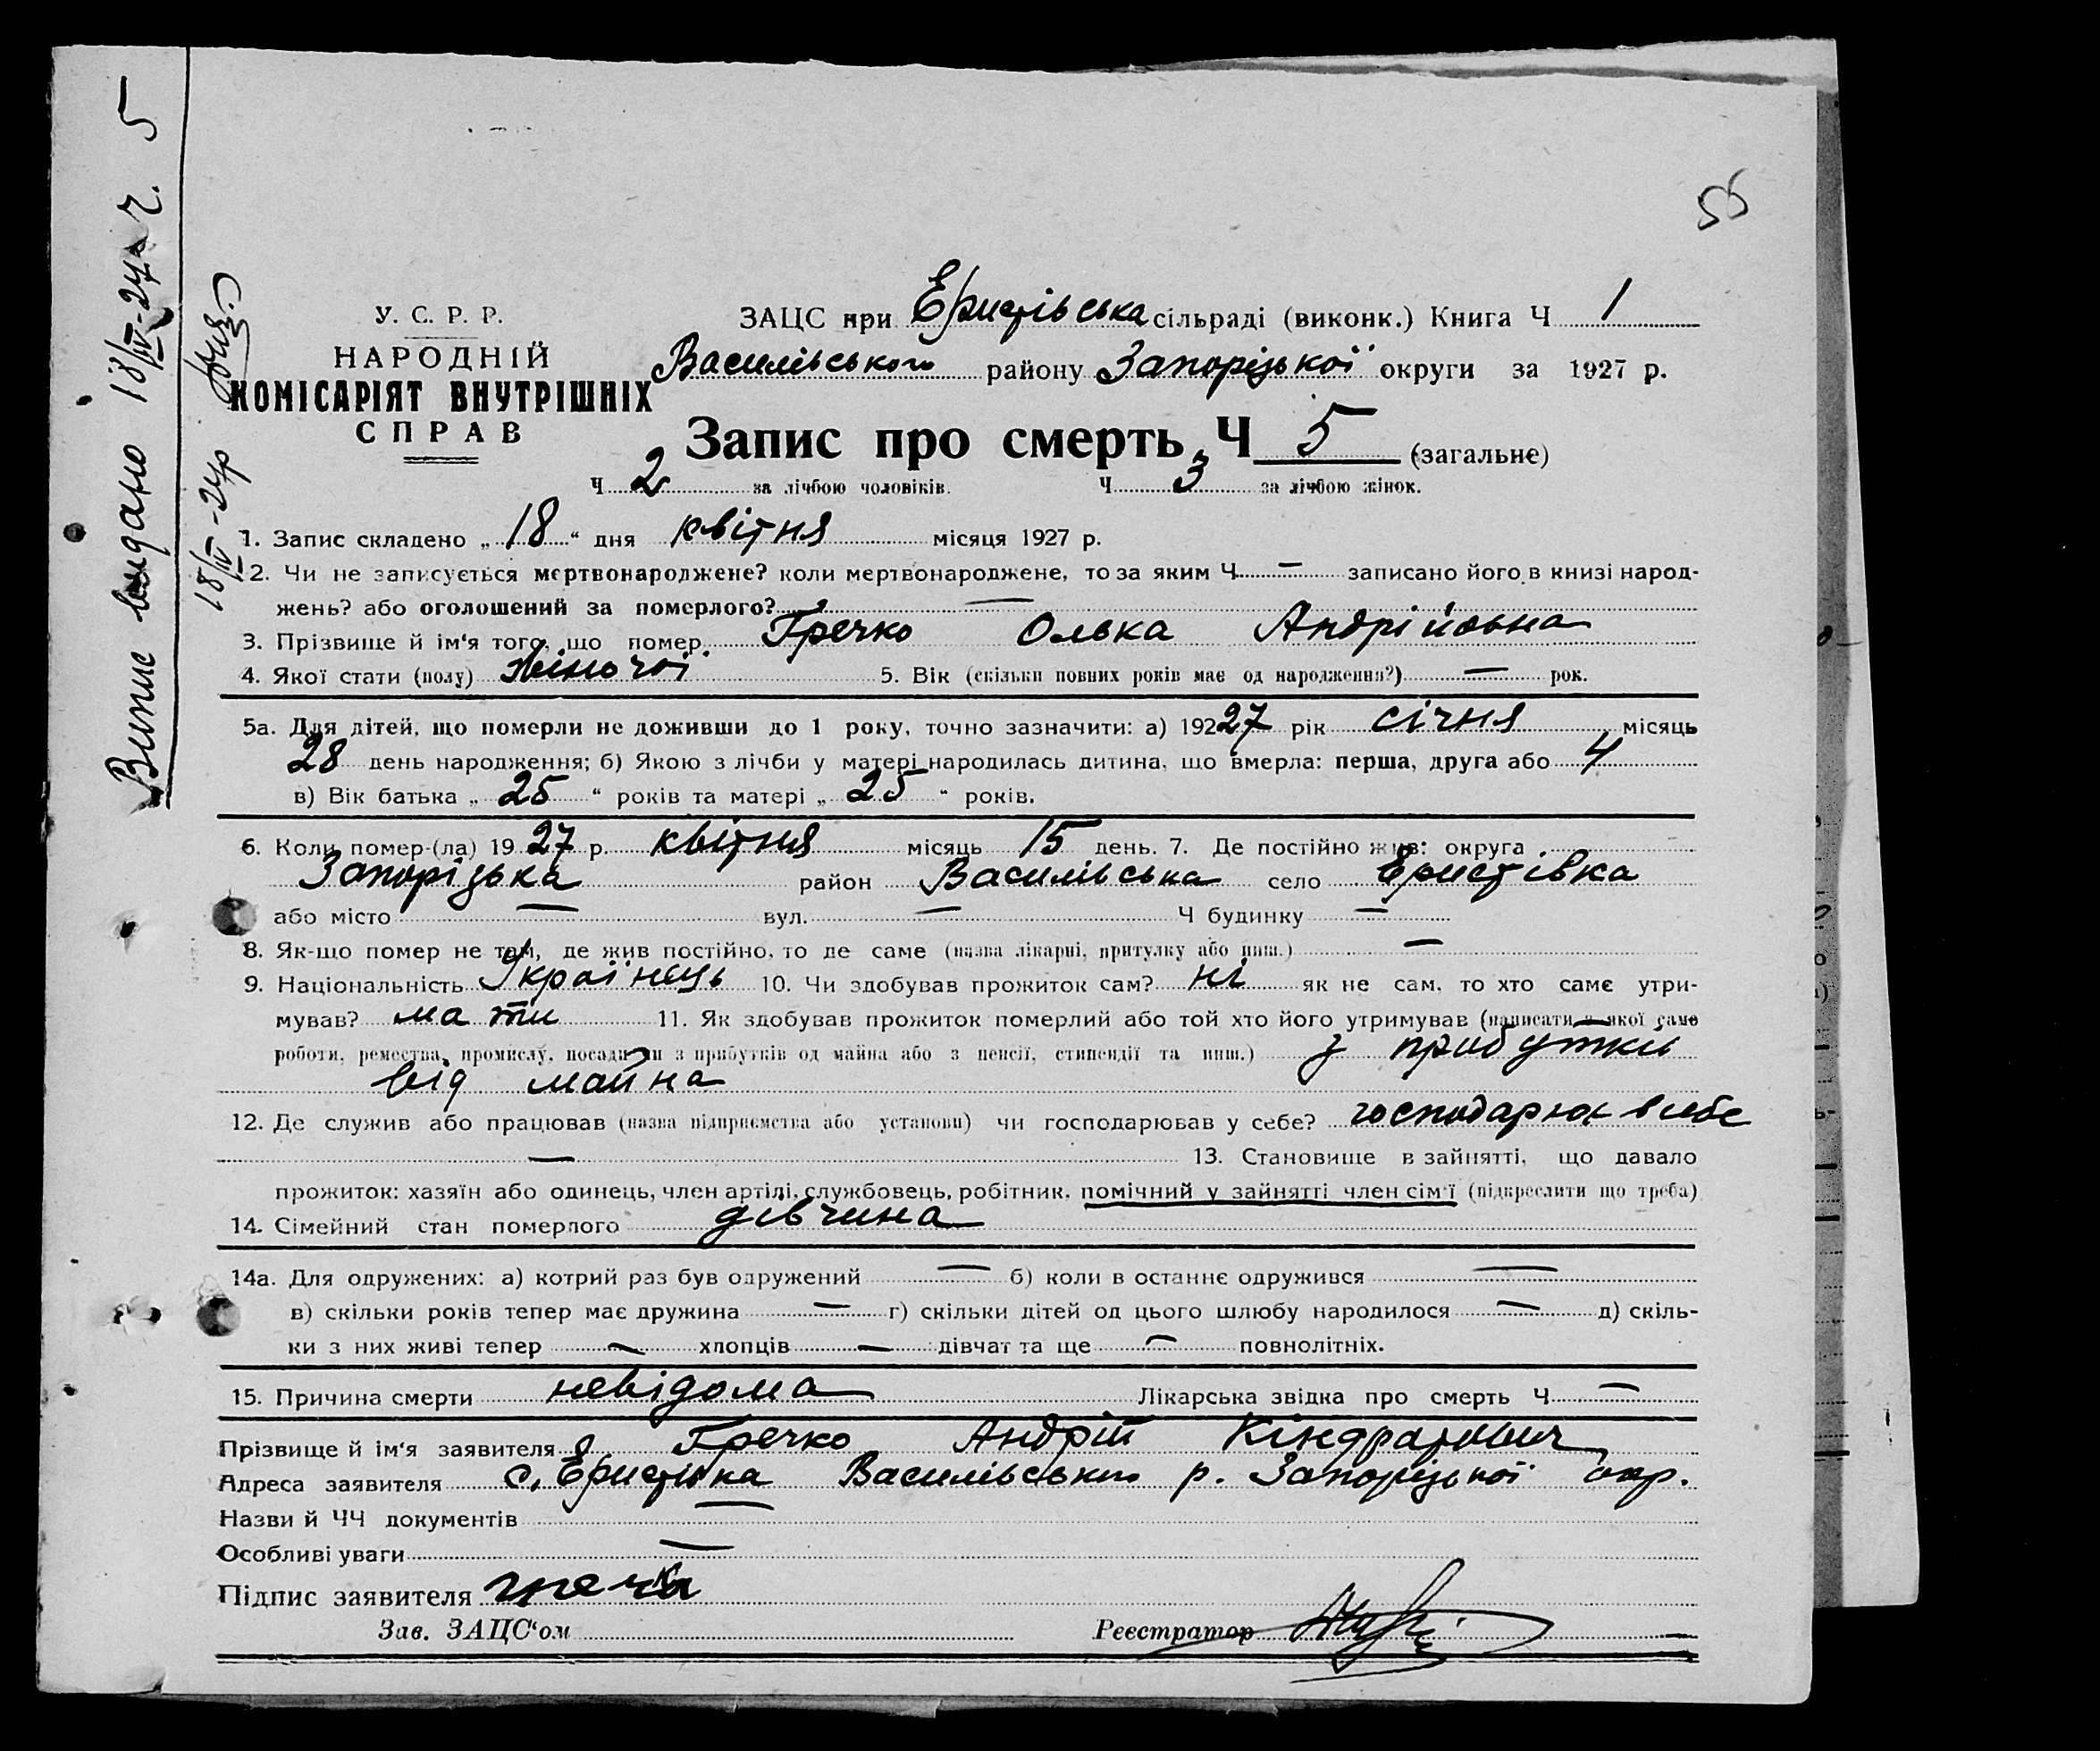 Випис видано 18/IV-27 р. Ч. 5
18/IV-27р
55
У. С. Р. Р.
НАРОДНІЙ
КОМІСАРІЯТ ВНУТРІШНІХ
СПРАВ
ЗАЦС при Еристівська сільраді (виконк.) Книга Ч 1
Василівського району Запорізької округи за 1927 р.
Запис про смерть Ч 5 (загальне)
Ч 2 за лічбою чоловіків. Ч 3 за лічбою жінок.
1. Запис складено „ 18 “ дня квітня місяця 1927 р.
2. Чи не записується мертвонароджене? коли мертвонароджене, то за яким Ч — записано його в книзі народ-
жень? або оголошений за померлого? —
3. Прізвище й ім'я того, що помер Гречко Олька Андрійовна
4. Якої стати (полу) жіночої 5. Вік (скільки повних років має од народження?) — рок.
5а. Для дітей, що померли не доживши до 1 року, точно зазначити: а) 19227 рік січня місяць
28 день народження; б) Якою з лічби у матері народилась дитина, що вмерла: перша, друга або 4
в) Вік батька „ 25 “ років та матері „ 25 “ років.
6. Коли помер-(ла) 19 27 р. квітня місяць 15 день. 7. Де постійно жив: округа
Запорізька район Василівська село Еристівка
або місто — вул. — Ч будинку —
8. Як-що помер не там, де жив постійно, то де саме (назва лікарні, притулку або инш.) —
9. Національність Українець 10. Чи здобував прожиток сам? ні як не сам, то хто саме утри-
мував? мати 11. Як здобував прожиток померлий або той хто його утримував (написати з якої саме
роботи, ремества, промислу, посади чи з прибутків од майна або з пенсії, стипендії та инш.) з прибутки
від майна
12. Де служив або працював (назва підприємства або установи) чи господарював у себе? господарює в себе
— 13. Становище в зайнятті, що давало
прожиток: хазяїн або одинець, член артілі, службовець, робітник, помічний у зайнятті член сім'ї (підкреслити що треба)
14. Сімейний стан померлого дівчина
14а. Для одружених: а) котрий раз був одружений — б) коли в останнє одружився —
в) скільки років тепер має дружина — г) скільки дітей од цього шлюбу народилося — д) скіль-
ки з них живі тепер — хлопців — дівчат та ще — повнолітніх.
15. Причина смерти невідома Лікарська звідка про смерть Ч —
Прізвище й ім'я заявителя Гречко Андрій Кіндратович
Адреса заявителя с. Еристівка Василівського р. Запорізької окр.
Назви й ЧЧ документів —
Особливі уваги —
Підпис заявителя
Зав. ЗАЦС'ом Реєстратор